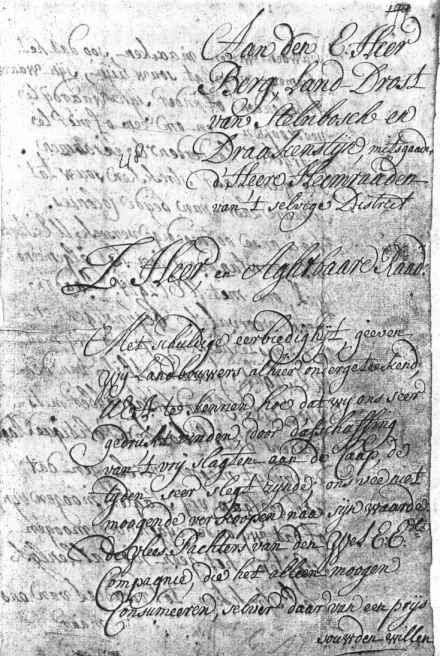 Aan den E Heer
Berg, Land-Drost
van Stelnbosch en
Draakensteijn, mitsgaders
d'Heere Heemraaden
van 't selvige District
E Heer, en Aghtbaare Raad.
Met schuldige eerbiedighijt, geeven
wij landbouwers alhier ondergeteekend
te kennen hoe dat wij ons seer
gedrukt vinden, door d'afschaffing
van 't vrij slagten aan de Caap, de
tijden seer slagt zijnde, ons vee niet
moogende verkoopen naa sijn waarde
de vlees Pachters van den Wel E E
Compagnie, die het alleen moogen
Consumeeren, selver daar van een prijs
souwden willen